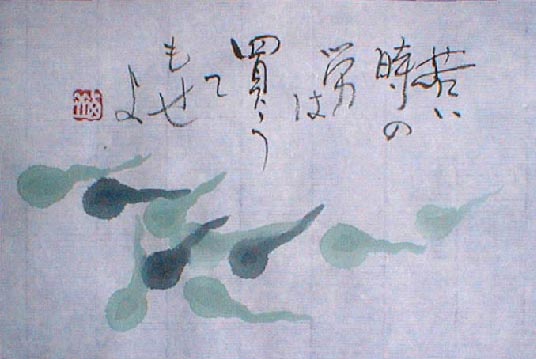 若い
時の
労
は
買う
て
もせ
よ